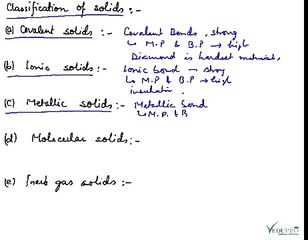 Classification of solids:-
(a) Covalent solids :- Covalent Bonds, strong
↳ M.P & B.P → high
Diamond is hardest material,
(b) Ionic solids :- Ionic bond – strong
↳ M.P & B.P → high
insulator.
(c) Metallic solids :- Metallic bond
↳ M.P. & B
(d) Molecular solids :-
(e) Inert gas solids :-